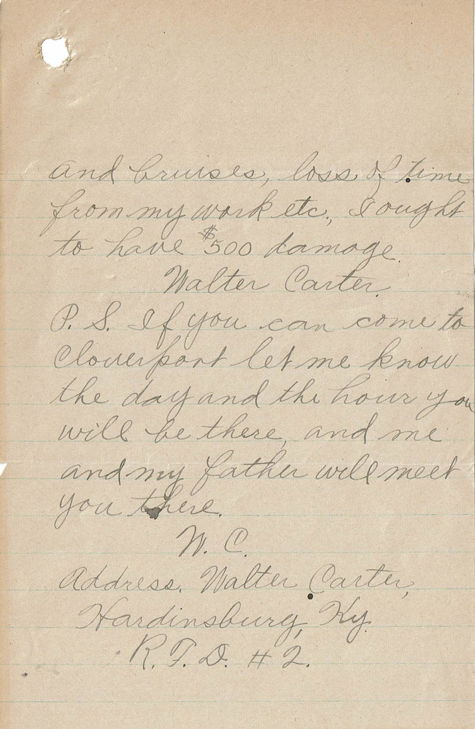 and bruises, loss of time
from my work etc., I ought
to have $500 damage.
Walter Carter.
P. S. If you can come to
Cloverport let me know
the day and the hour you
will be there, and me
and my father will meet
you there.
W. C.
Address. Walter Carter,
Hardinsburg, Ky.
R. F. D. #2.